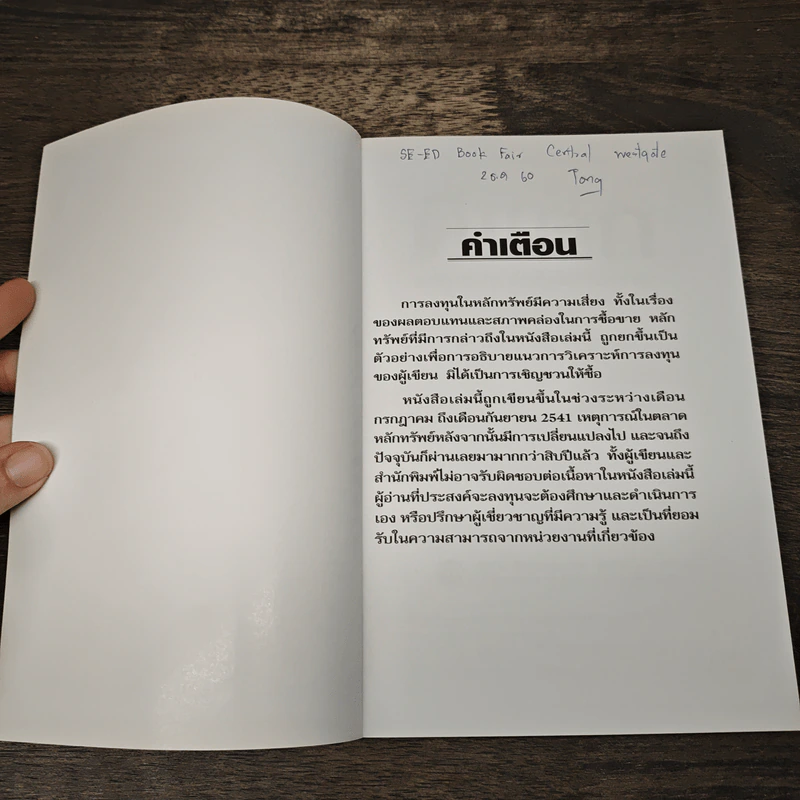 SE-ED Book Fair Central westgate
26.9 60 Tong
คำเตือน
การลงทุนในหลักทรัพย์มีความเสี่ยง ทั้งในเรื่อง
ของผลตอบแทนและสภาพคล่องในการซื้อขาย หลัก
ทรัพย์ที่มีการกล่าวถึงในหนังสือเล่มนี้ ถูกยกขึ้นเป็น
ตัวอย่างเพื่อการอธิบายแนวการวิเคราะห์การลงทุน
ของผู้เขียน มิได้เป็นการเชิญชวนให้ซื้อ
หนังสือเล่มนี้ถูกเขียนขึ้นในช่วงระหว่างเดือน
กรกฎาคม ถึงเดือนกันยายน 2541 เหตุการณ์ในตลาด
หลักทรัพย์หลังจากนั้นมีการเปลี่ยนแปลงไป และจนถึง
ปัจจุบันก็ผ่านเลยมามากกว่าสิบปีแล้ว ทั้งผู้เขียนและ
สำนักพิมพ์ไม่อาจรับผิดชอบต่อเนื้อหาในหนังสือเล่มนี้
ผู้อ่านที่ประสงค์จะลงทุนจะต้องศึกษาและดำเนินการ
เอง หรือปรึกษาผู้เชี่ยวชาญที่มีความรู้ และเป็นที่ยอม
รับในความสามารถจากหน่วยงานที่เกี่ยวข้อง